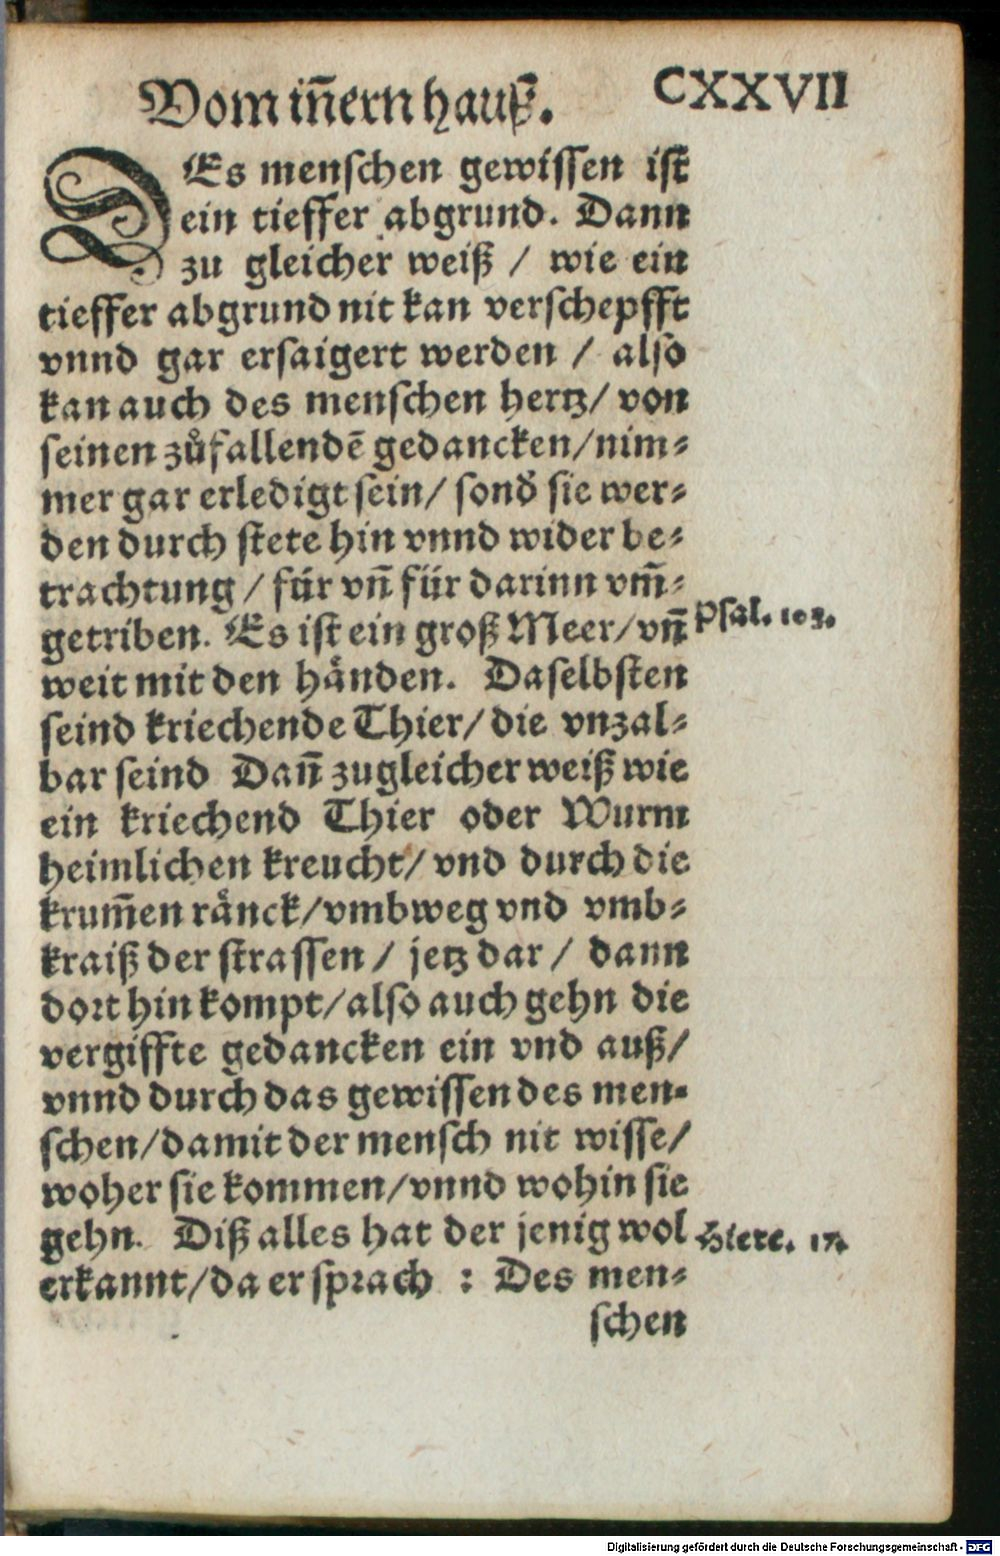 Vom iñern hauß. CXXVII
DEs menschen gewissen ist
ein tieffer abgrund. Dann
zu gleicher weiß / wie ein
tieffer abgrund nit kan verschepfft
vnnd gar ersaigert werden / also
kan auch des menschen hertz/ von
seinen zůfallendē gedancken/nim-
mer gar erledigt sein/ sond̕ sie wer-
den durch stete hin vnnd wider be-
trachtung / für vñ für darinn vm̄-
getriben. Es ist ein groß Meer/vñ
Psal. 103.
weit mit den händen. Daselbsten
seind kriechende Thier/ die vnzal-
bar seind Dañ zugleicher weiß wie
ein kriechend Thier oder Wurm
heimlichen kreucht/ vnd durch die
krum̄en ränck/vmbweg vnd vmb-
kraiß der strassen / jetz dar / dann
dort hin kompt/also auch gehn die
vergiffte gedancken ein vnd auß/
vnnd durch das gewissen des men-
schen/damit der mensch nit wisse/
woher sie kommen/vnnd wohin sie
gehn. Diß alles hat der jenig wol
Hiere. 17.
erkannt/da er sprach : Des men-
schen
Digitalisierung gefördert durch die Deutsche Forschungsgemeinschaft - DFG